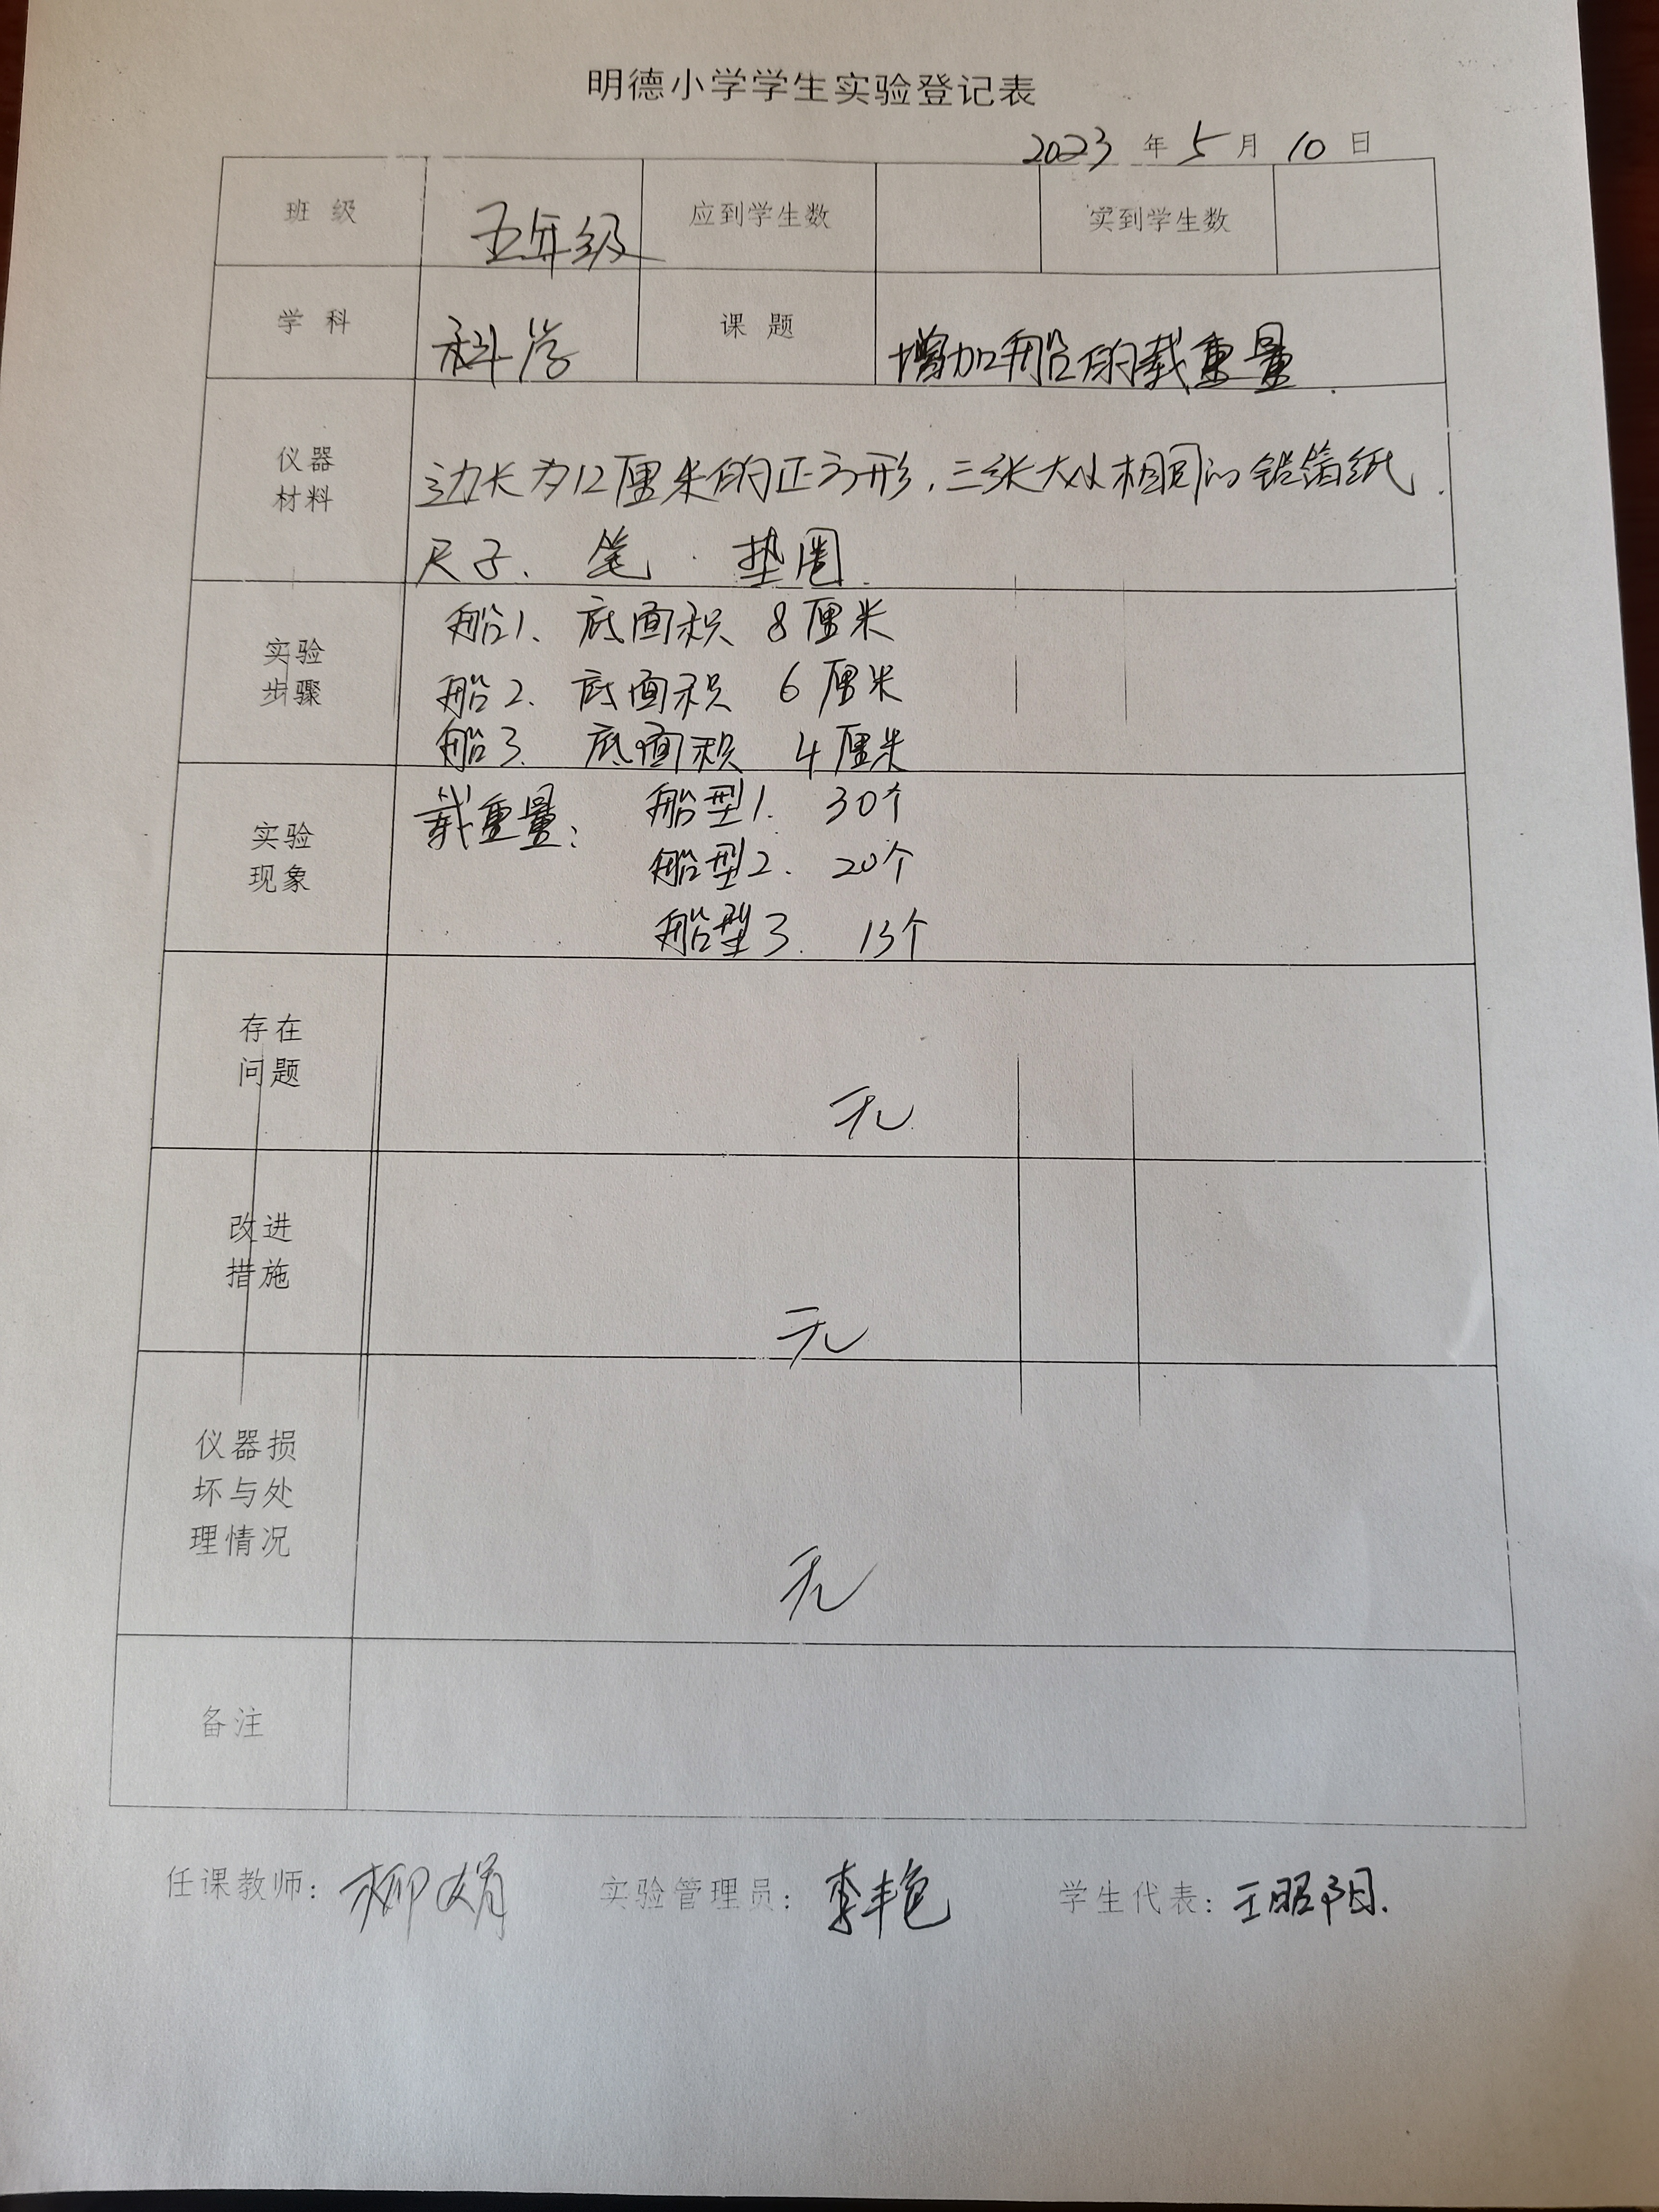 明德小学学生实验登记表
2023 年 5 月 10 日
班 级 五年级 应到学生数 实到学生数
学 科 科学 课 题 增加船的载重量.
仪器
材料
边长为12厘米的正方形,三张大小相同的铝箔纸.
尺子、笔.垫圈.
实验
步骤
船1、底面积 8厘米
船2、底面积 6厘米
船3、底面积 4厘米
实验
现象
载重量: 船型1. 30个
船型2. 20个
船型3. 13个
存在
问题
无.
改进
措施
无
仪器损
坏与处
理情况
无
备注
任课教师: 柳娟 实验管理员: 李丰艳 学生代表: 王昭阳.